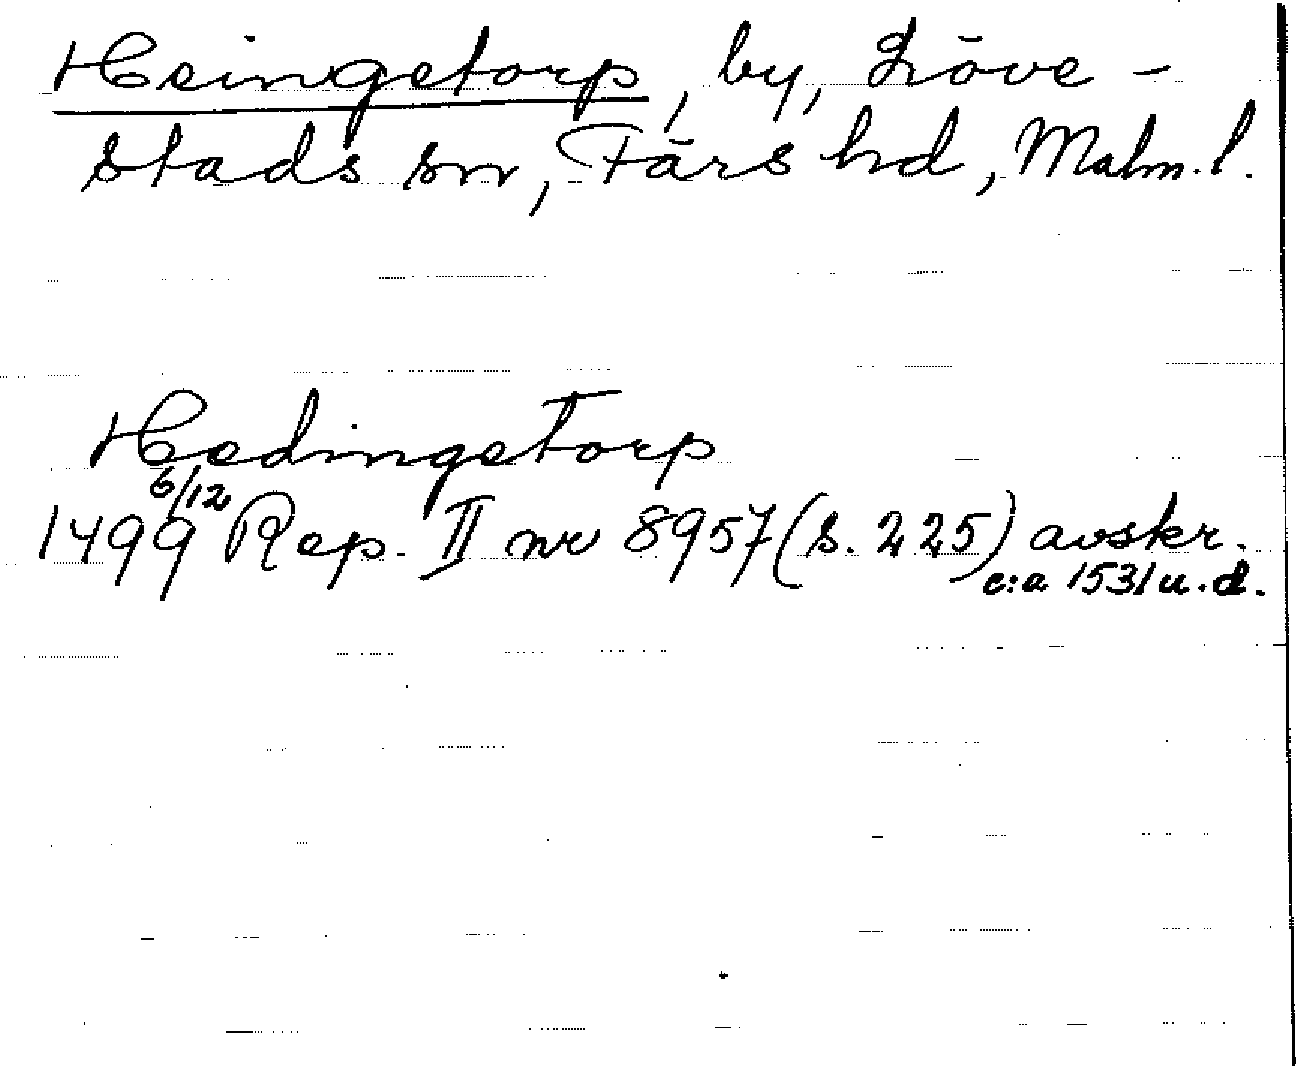 Heingetorp, by, Löve-
stads sn, Färs hd, Malm. l.
Hedingetorp
1499 6/12 Rep. II nr 8957 (s. 225) avskr.
c:a 1531 u. d.